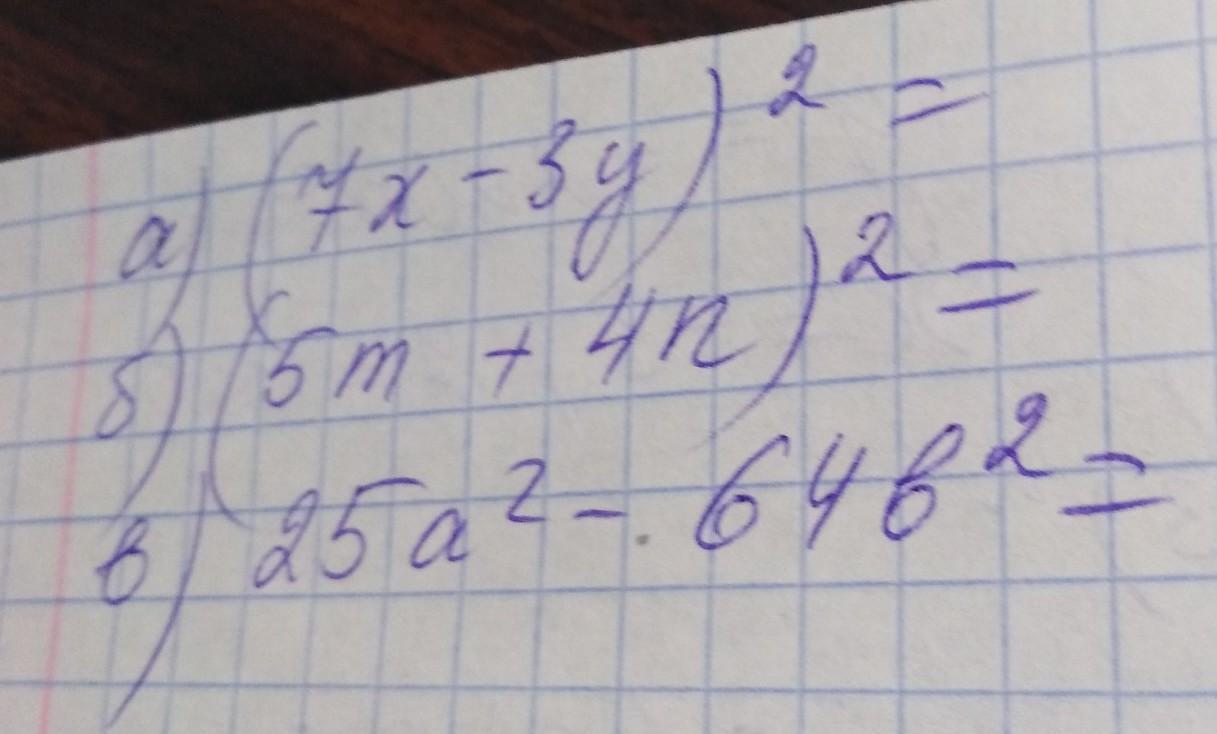 а) (7x - 3y)² =
б) (5m + 4n)² =
в) 25a² - 64b² =